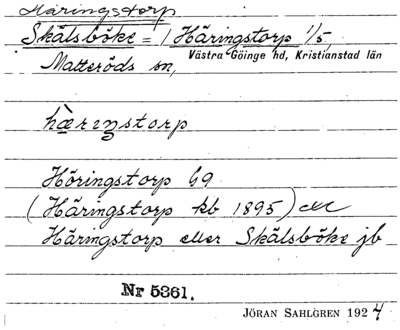 Häringstorp
Skälsböke = / Häringstorp 1/5,
Västra Göinge hd, Kristianstad län
Matteröds sn,
Höringstorp G9
(Häringstorp kb 1895)
Häringstorp eller Skälsböke jb
Nr 5361.
JÖRAN SAHLGREN 1924